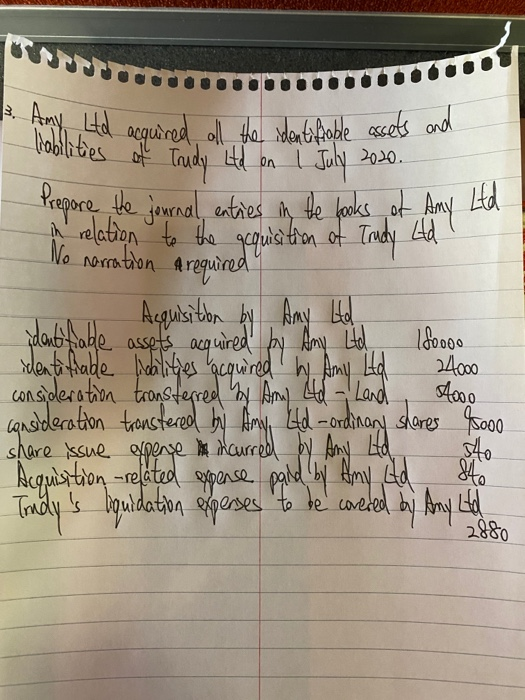 3. Amy Ltd acquired all the identifiable assets and
liabilities of Trudy Ltd on 1 July 2020.
Prepare the journal entries in the books of Amy Ltd
in relation to the acquisition of Trudy Ltd
No narration required
Acquisition by Amy Ltd
identifiable assets acquired by Amy Ltd 180000
identifiable liabilities acquired by Amy Ltd 24000
consideration transferred by Amy Ltd - Land 54000
consideration transfered by Amy Ltd - ordinary shares 95000
share issue expense incurred by Amy Ltd 540
Acquisition-related expense paid by Amy Ltd 840
Trudy's liquidation expenses to be covered by Amy Ltd
2880